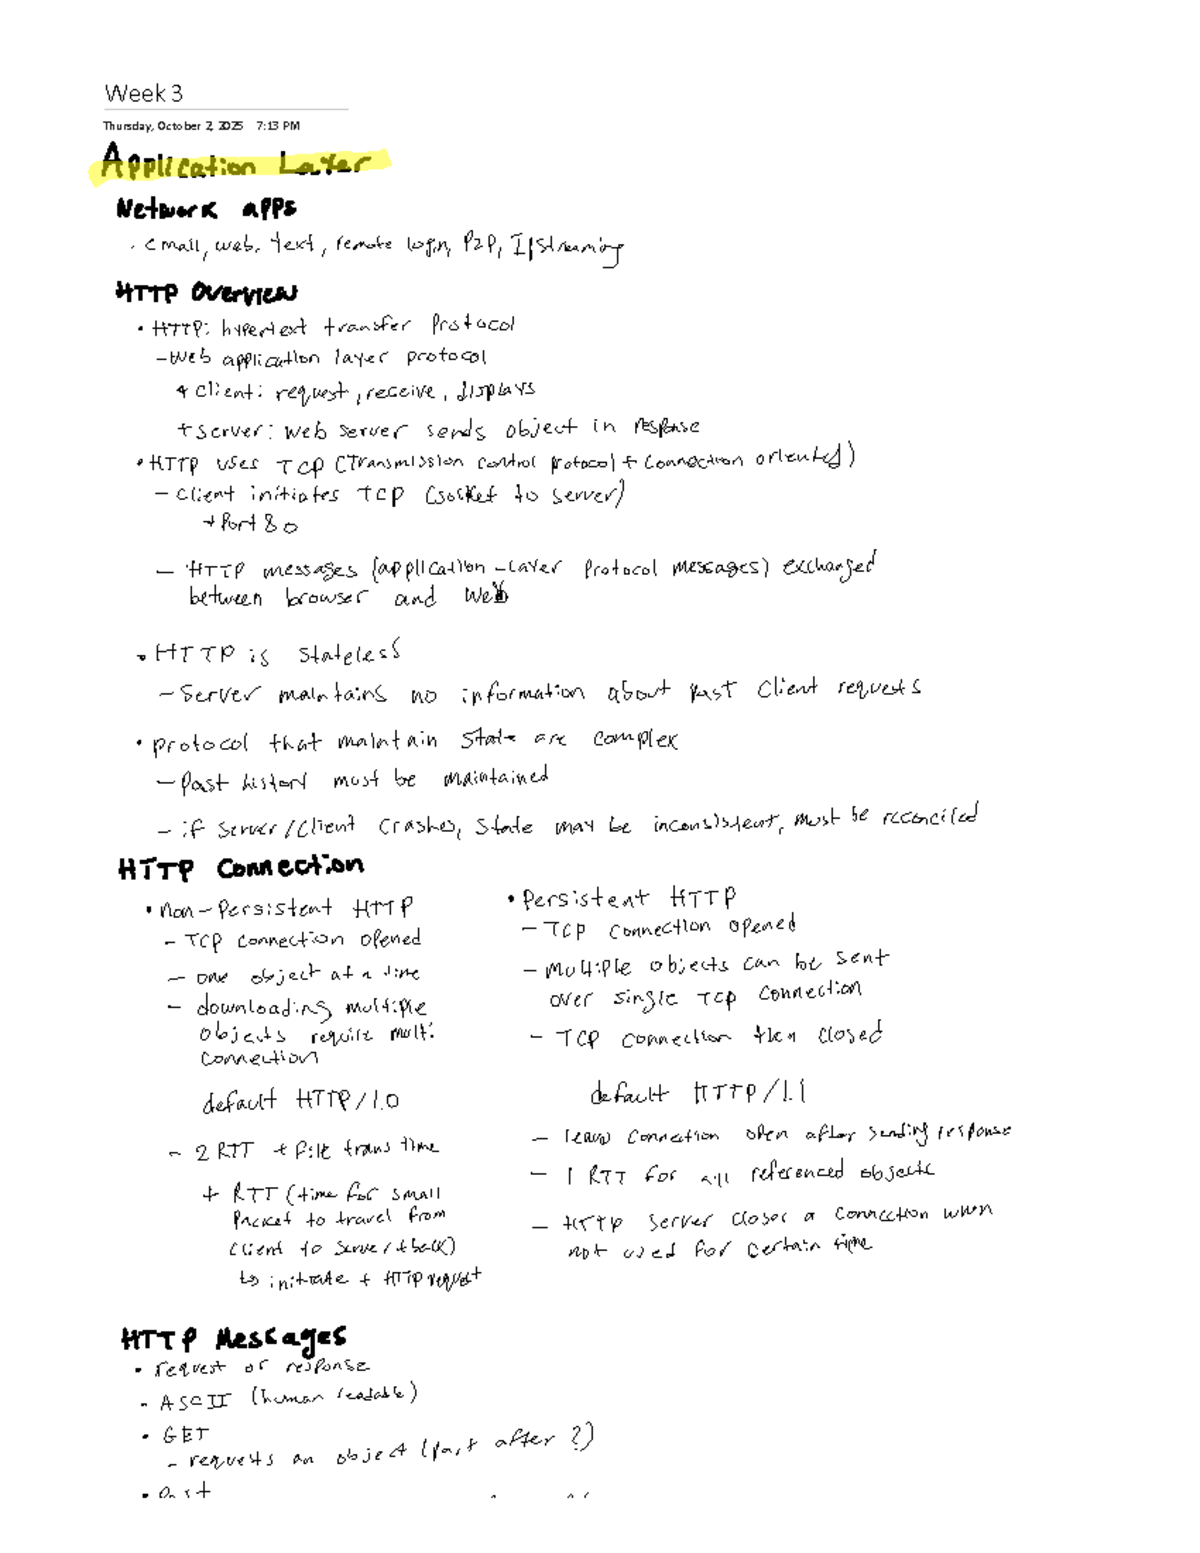 Week 3
Thursday, October 2, 2025 7:13 PM
Application Layer
Network apps
· email, web, text, remote login, P2P, IP streaming
HTTP Overview
• HTTP: hypertext transfer protocol
- Web application layer protocol
+ client: request, receive, displays
+ server: web server sends object in response
• HTTP uses TCP (Transmission control protocol + connection oriented)
- client initiates TCP (socket to server)
+ Port 80
- HTTP messages (application-layer protocol messages) exchanged
between browser and Web
• HTTP is stateless
- Server maintains no information about past client requests
• protocol that maintain state are complex
- Past history must be maintained
- if server/client crashes, state may be inconsistent, must be reconciled
HTTP Connection
• non-persistent HTTP
- TCP connection opened
- one object at a time
- downloading multiple
objects require multi
connection
default HTTP/1.0
- 2 RTT + file trans time
+ RTT (time for small
packet to travel from
client to server + back)
↳ initiate + HTTP request
• Persistent HTTP
- TCP connection opened
- Multiple objects can be sent
over single TCP connection
- TCP connection then closed
default HTTP/1.1
- leave connection open after sending response
- 1 RTT for all referenced objects
- HTTP server closes a connection when
not used for certain time
HTTP Messages
• request or response
• ASCII (human readable)
• GET
- requests an object (part after ?)
• Post